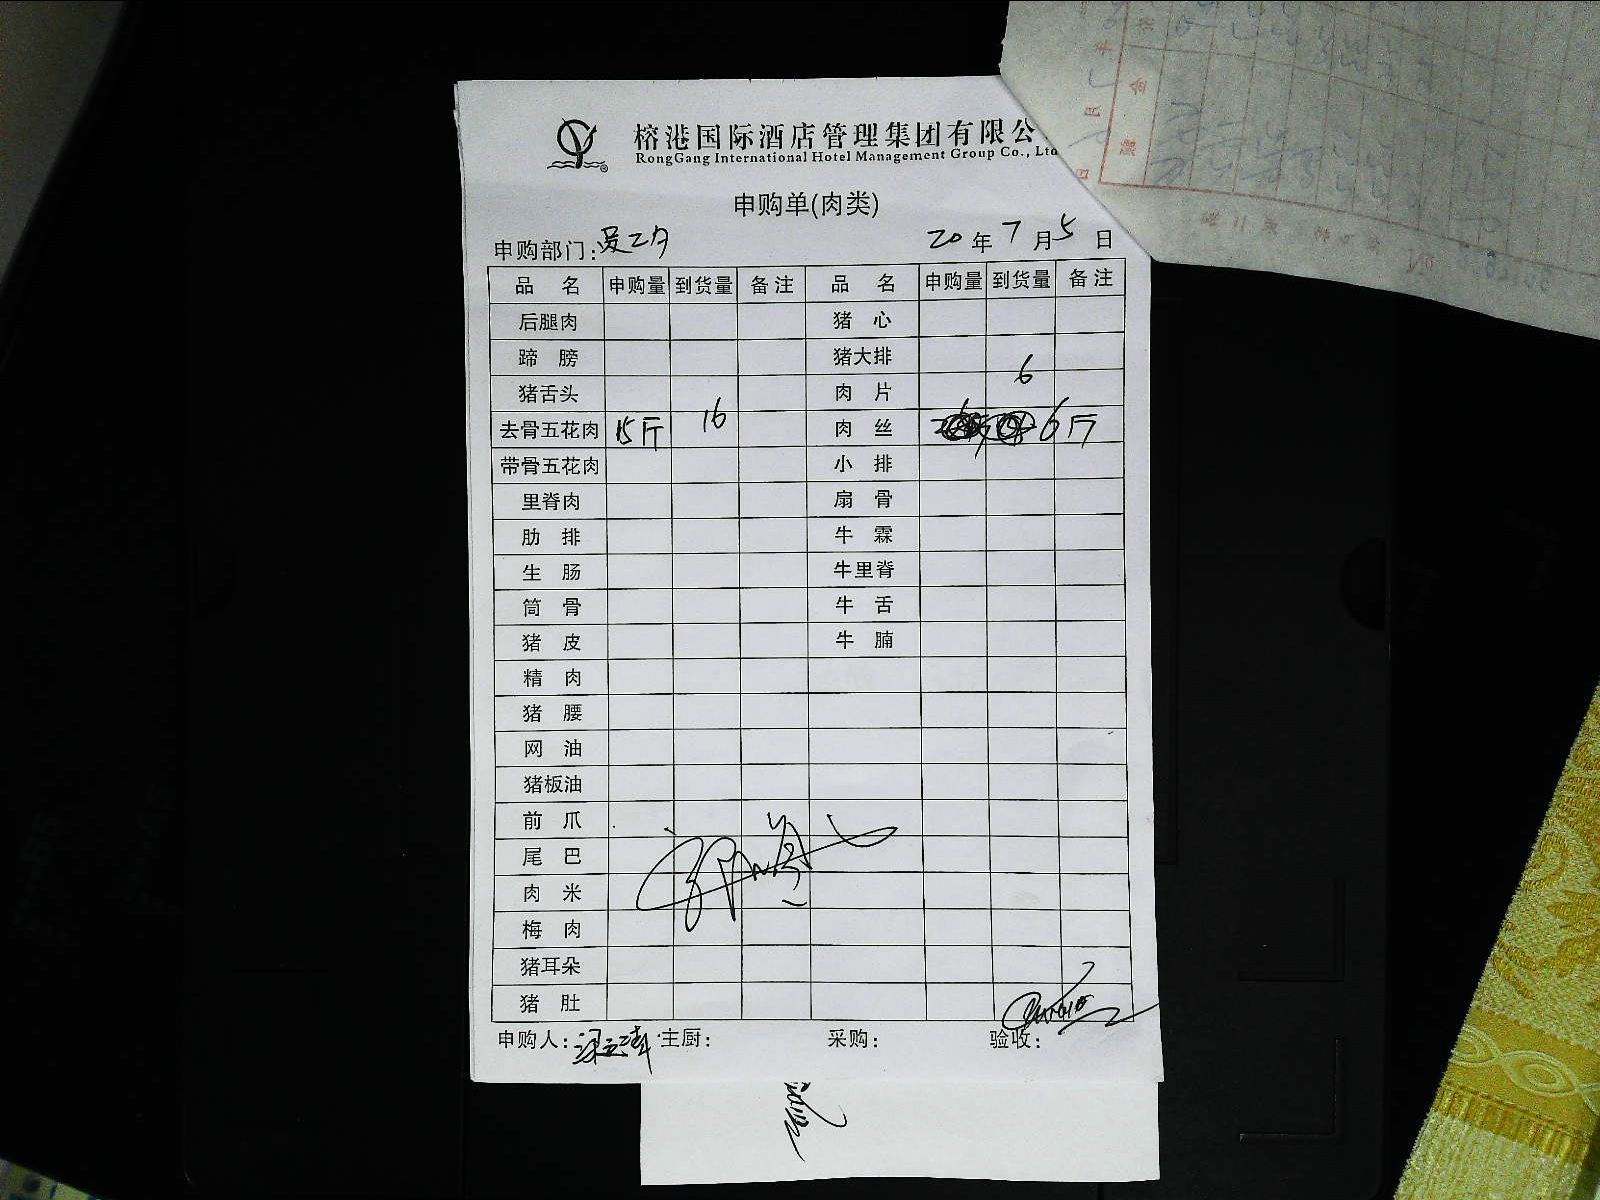 榕港国际酒店管理集团有限公
RongGang International Hotel Management Group Co., Ltd
申购单(肉类)
申购部门: 员工 20 年 7 月 5 日
品 名 申购量 到货量 备注 品 名 申购量 到货量 备注
后腿肉 猪 心
蹄 膀 猪大排
猪舌头 肉 片 6
去骨五花肉 15斤 16 肉 丝 6斤
带骨五花肉 小 排
里脊肉 扇 骨
肋 排 牛 霖
生 肠 牛里脊
筒 骨 牛 舌
猪 皮 牛 腩
精 肉
猪 腰
网 油
猪板油
前 爪
尾 巴
肉 米
梅 肉
猪耳朵
猪 肚
申购人: 主厨: 采购: 验收: